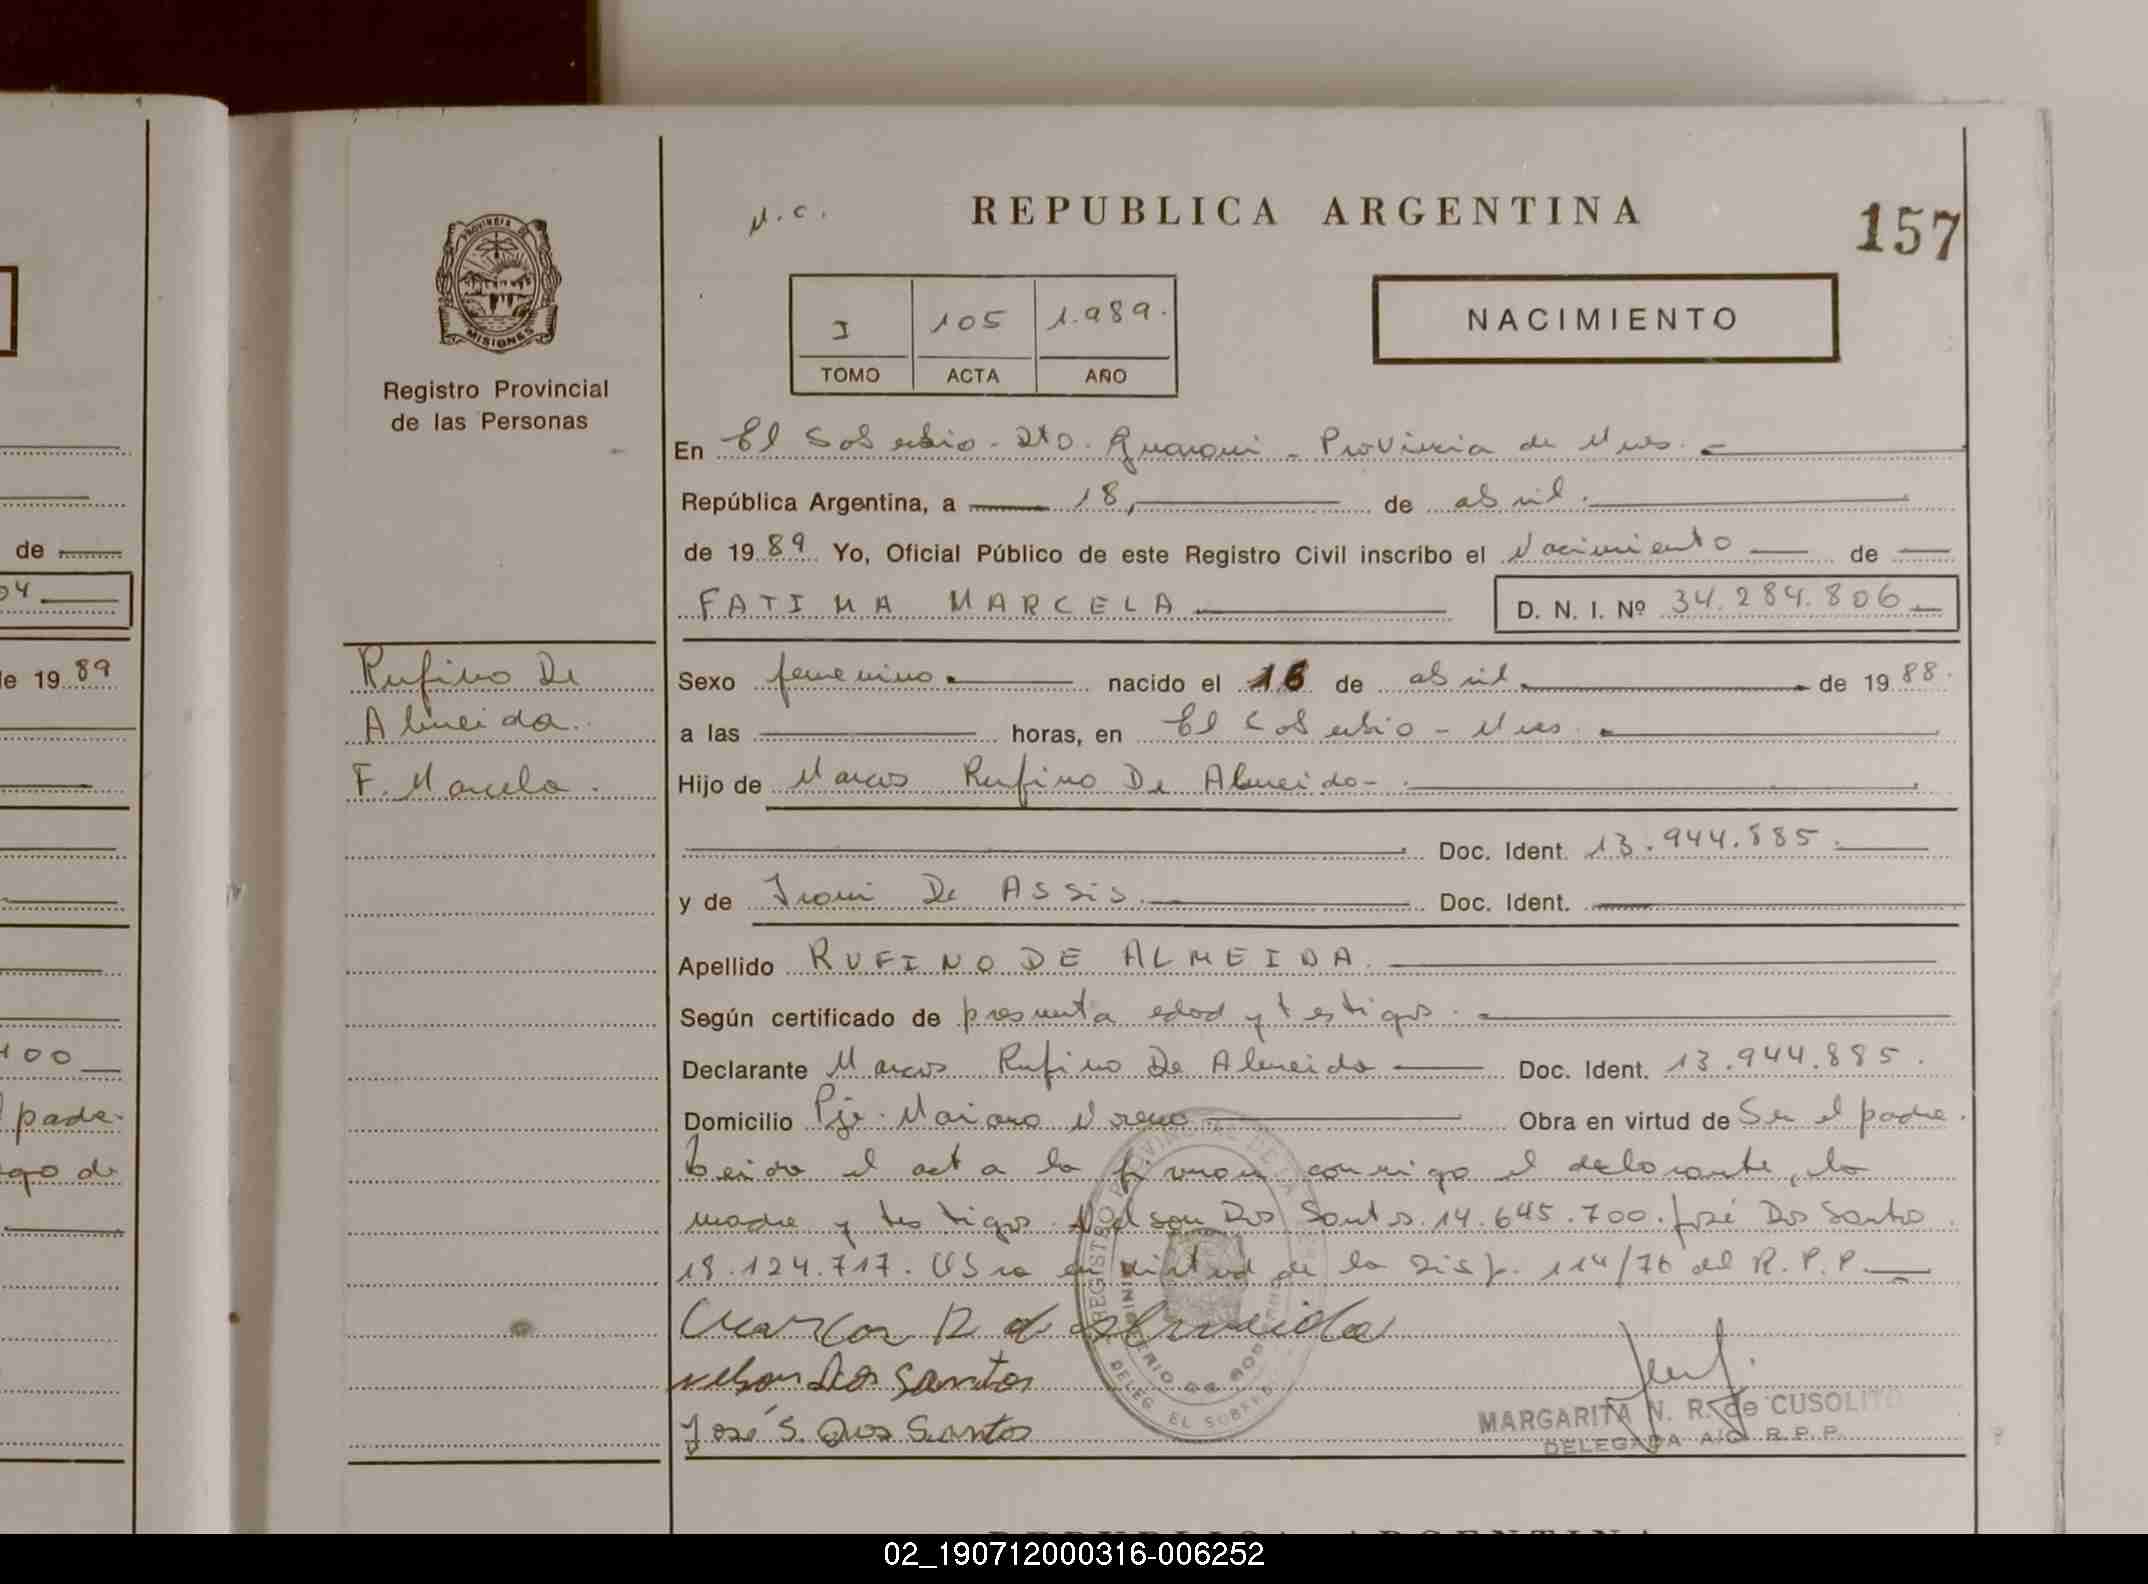 N.C.
REPUBLICA ARGENTINA
157
PROVINCIA DE
MISIONES
Registro Provincial
de las Personas
I 105 1.989.
TOMO ACTA AÑO
NACIMIENTO
En El Soberbio - Dto. Guarani - Provincia de Mnes.
República Argentina, a 18, de abril.
de 1989 Yo, Oficial Público de este Registro Civil inscribo el Nacimiento de
FATIMA MARCELA D. N. I. Nº 34.284.806
Rufino De
Almeida.
F. Marcela.
Sexo femenino nacido el 16 de abril de 1988.
a las horas, en El Soberbio - Mnes.
Hijo de Marcos Rufino De Almeida-
Doc. Ident. 13.944.885.
y de Irani De Assis. Doc. Ident.
Apellido RUFINO DE ALMEIDA.
Según certificado de presunta edad y testigos.
Declarante Marcos Rufino De Almeida Doc. Ident. 13.944.885.
Domicilio Pje. Mariano Moreno Obra en virtud de Ser el padre.
Leida el acta la firman conmigo el declarante, la
madre y testigos Nelson Dos Santos. 14.645.700. José Dos Santos
18.124.717. Obra en virtud de la Disp. 114/76 del R.P.P.
Marcos R de Almeida
nelson Dos Santos
José S. Dos Santos
MARGARITA N. R. de CUSOLITO
DELEGADA A/C. R.P.P.
de
04
de 19 89
100
padre.
go de
REPUBLICA ARGENTINA
02_190712000316-006252